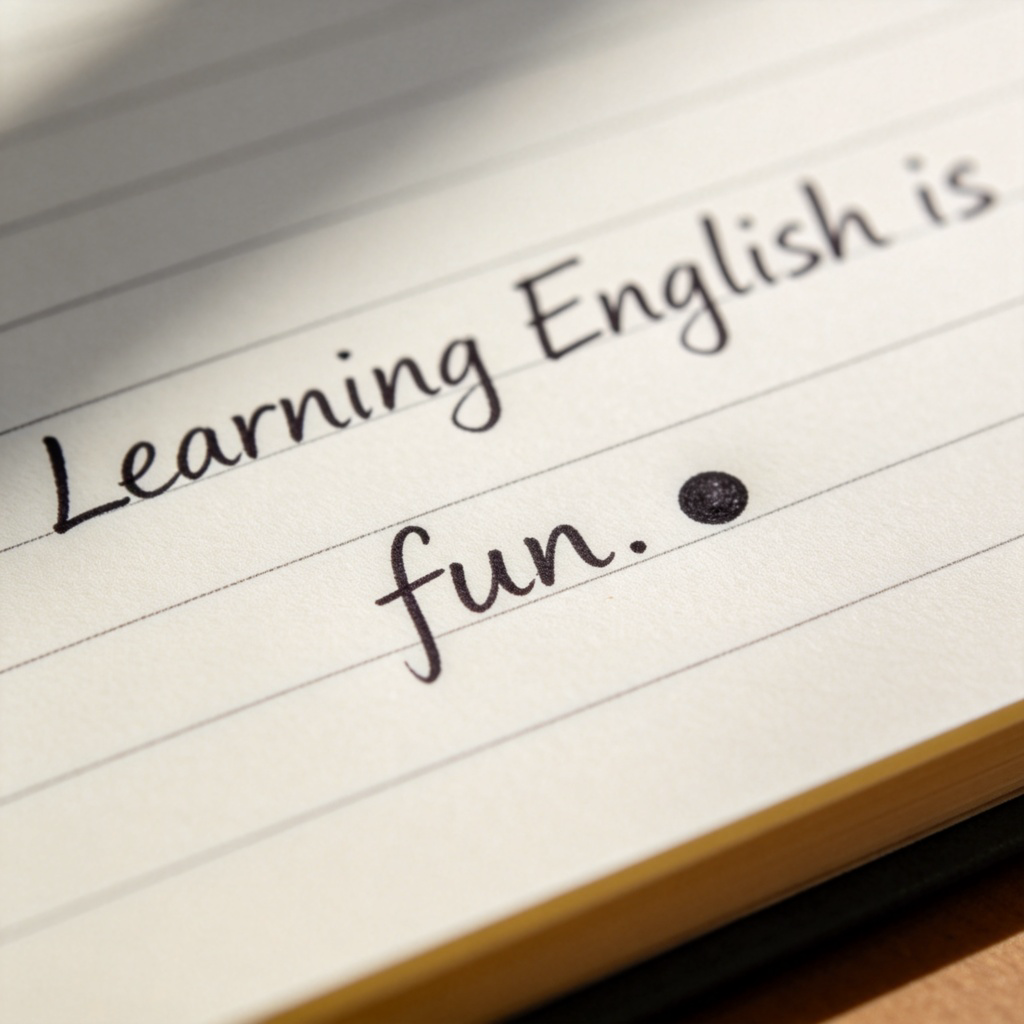 Learning English is
fun. ●